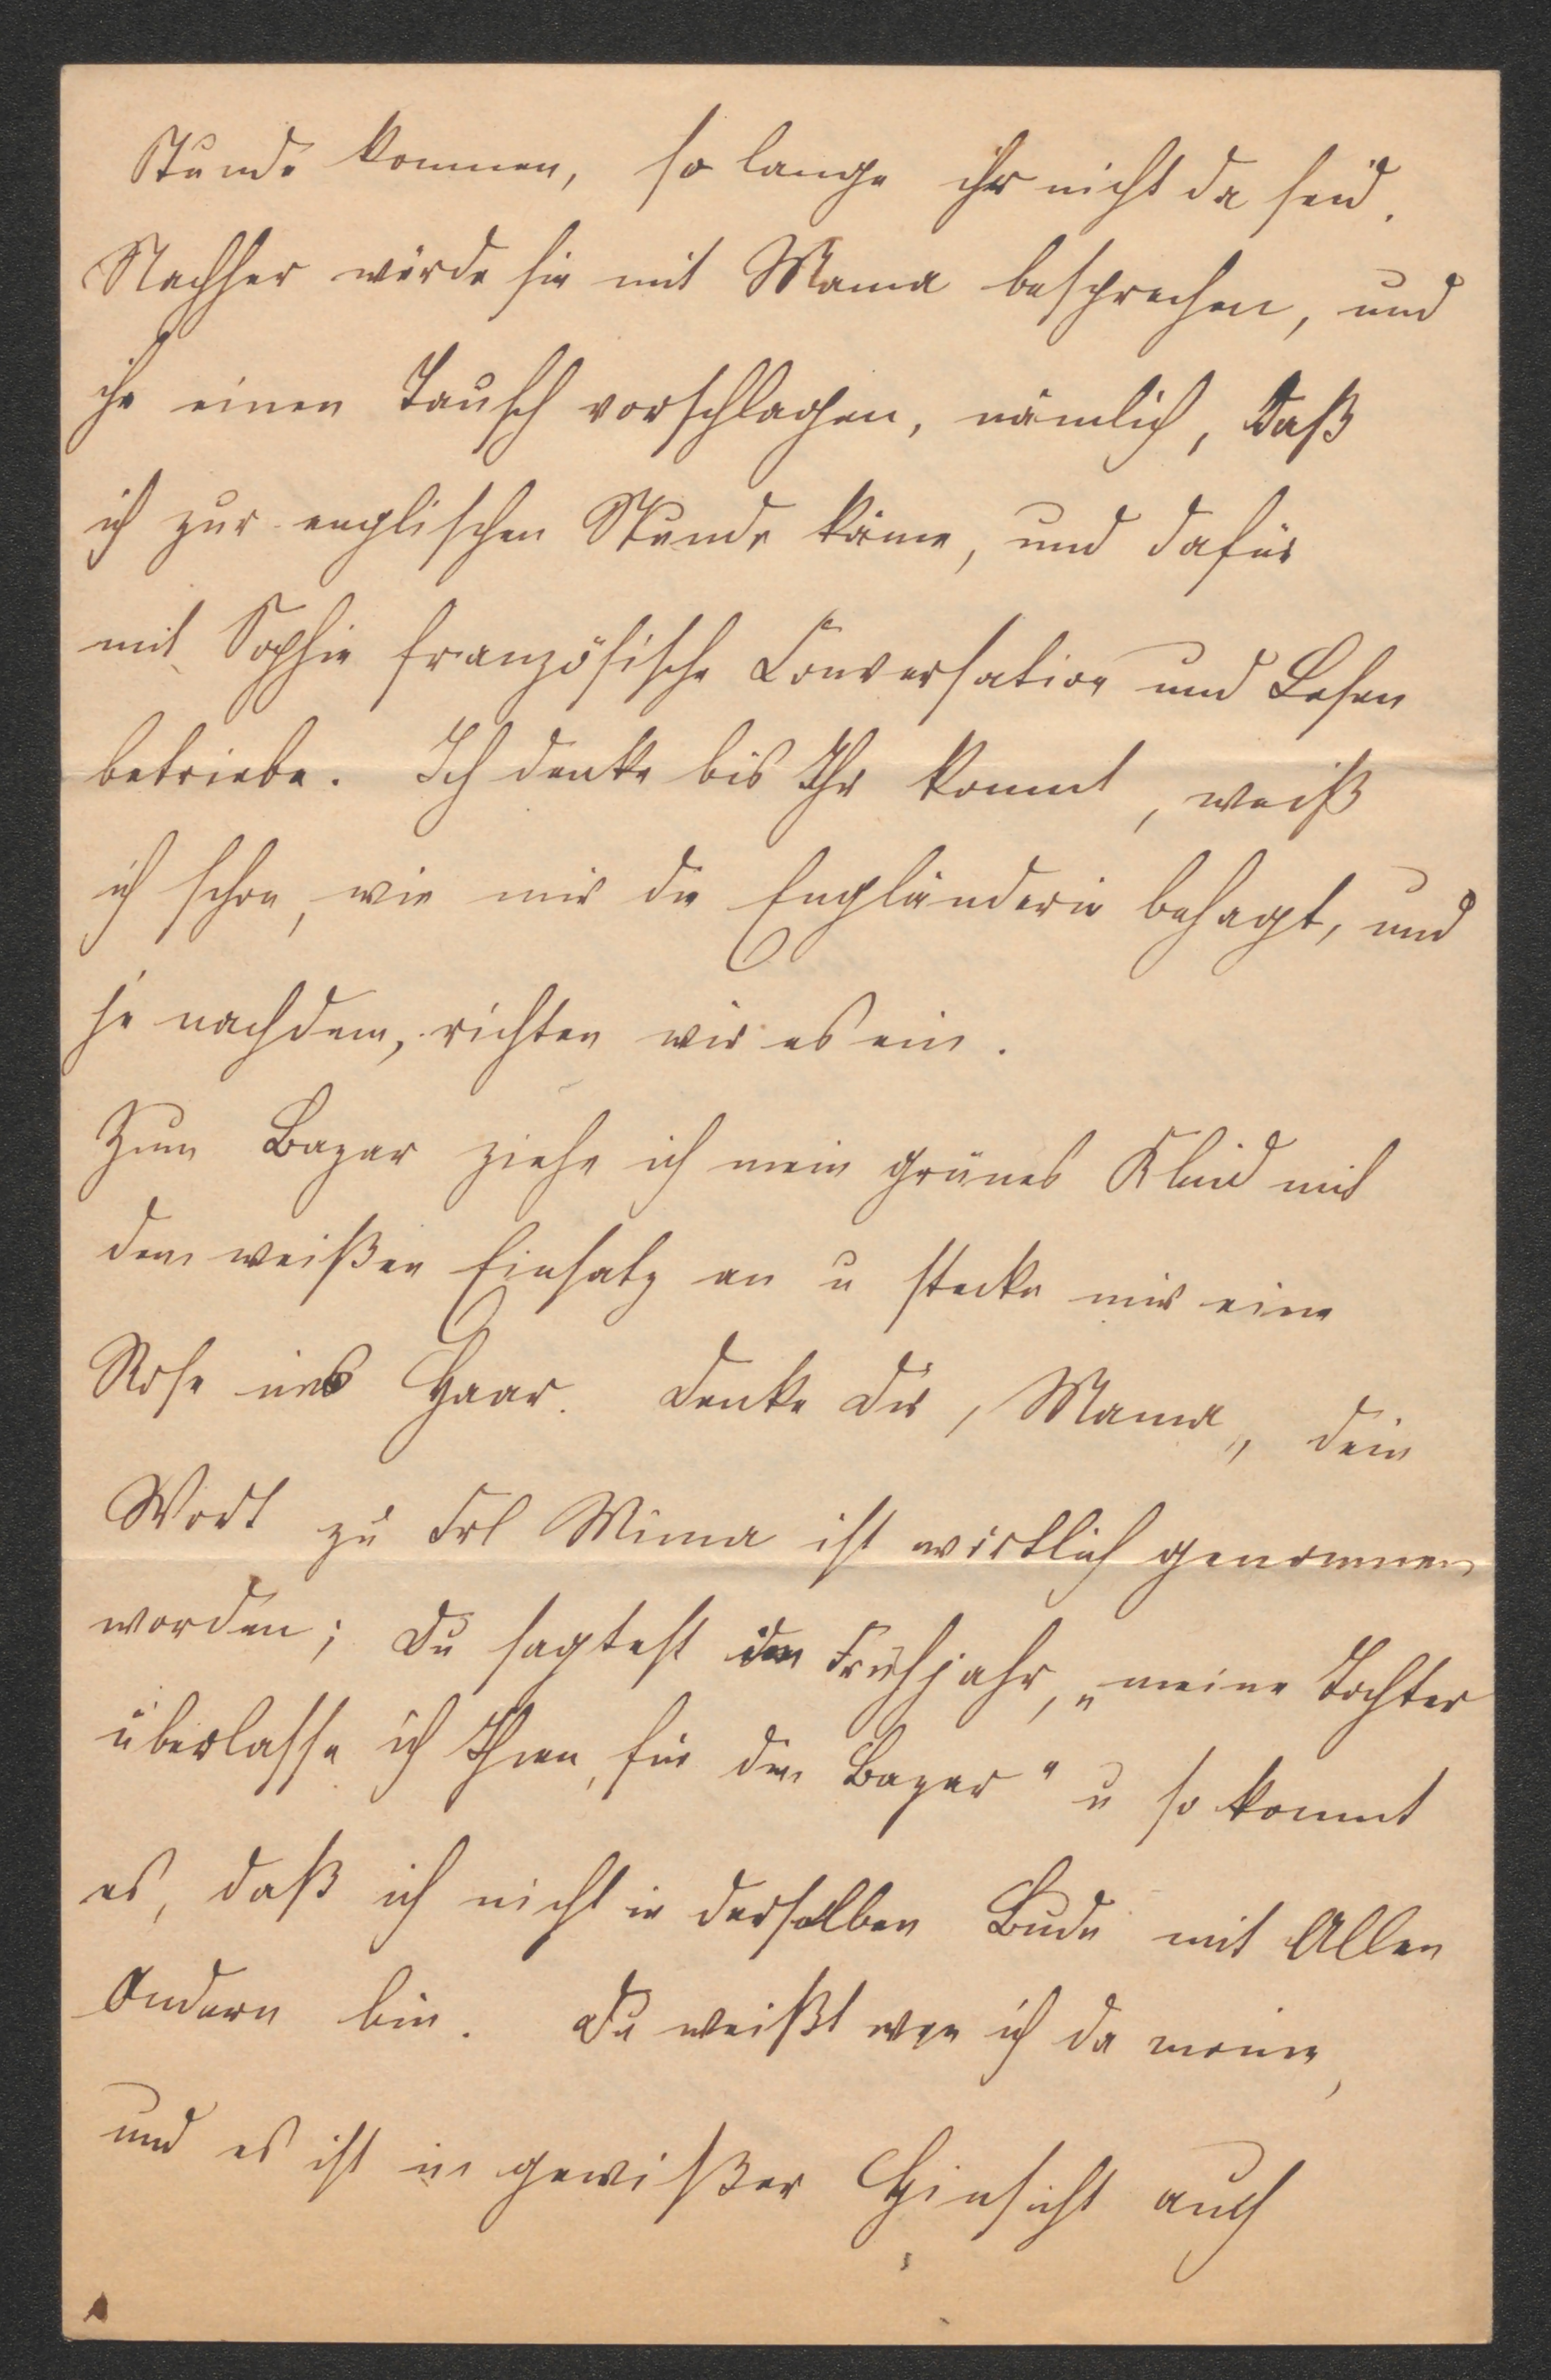 Stunde kommen, so lange ihr nicht da seid.
Nachher würde sie mit Mama besprechen, und
ihr einen Tausch vorschlagen, nämlich, daß
ich zur englischen Stunde käme, und dafür
mit Sophie französische Conversation und Lesen
betriebe. Ich denke bis Ihr kommt, weiß
ich schon, wie mir die Engländerin behagt, und
je nachdem, richten wir es ein.
Zum Bazar ziehe ich mein grünes Kleid mit
dem weißen Einsatz an u stecke mir eine
Rose ins Haar. Denke Dir, Mama, dein
Wort zu Frl Mima ist wirklich genommen
worden; Du sagtest im Frühjahr, „meine Tochter
überlasse ich Ihnen, für den Bazar" u so kommt
es, daß ich nicht in derselben Bude mit Allen
Andern bin. Du weißt wen ich da meine,
und es ist in gewißer Hinsicht auch